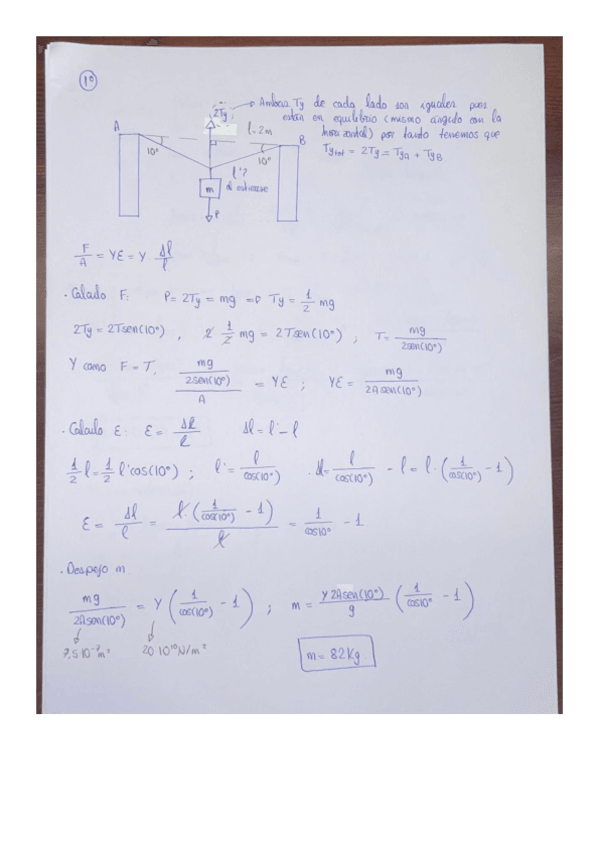 1º
Ambas Ty de cada lado son iguales pues
están en equilibrio (mismo ángulo con la
horizontal) por tanto tenemos que
Ty tot = 2Ty = TyA + TyB
2Ty
A
l = 2m
B
10º
10º
l'?
al estirarse
m
P
F/A = Yε = Y Δl/l
· Calculo F: P = 2Ty = mg => Ty = 1/2 mg
2Ty = 2Tsen(10º) , 2 1/2 mg = 2Tsen(10º) ; T = mg/2sen(10º)
Y como F = T, (mg/2sen(10º))/A = Yε ; Yε = mg/2Asen(10º)
· Calculo ε: ε = Δl/l Δl = l' - l
1/2 l = 1/2 l' cos(10º) ; l' = l/cos(10º) . Δl = l/cos(10º) - l = l · (1/cos(10º) - 1)
ε = Δl/l = l · (1/cos(10º) - 1)/l = 1/cos10º - 1
· Despejo m
mg/2Asen(10º) = Y (1/cos(10º) - 1) ; m = Y2Asen(10º)/g (1/cos10º - 1)
7,5·10⁻⁷m² 20·10¹⁰N/m²
m = 82Kg